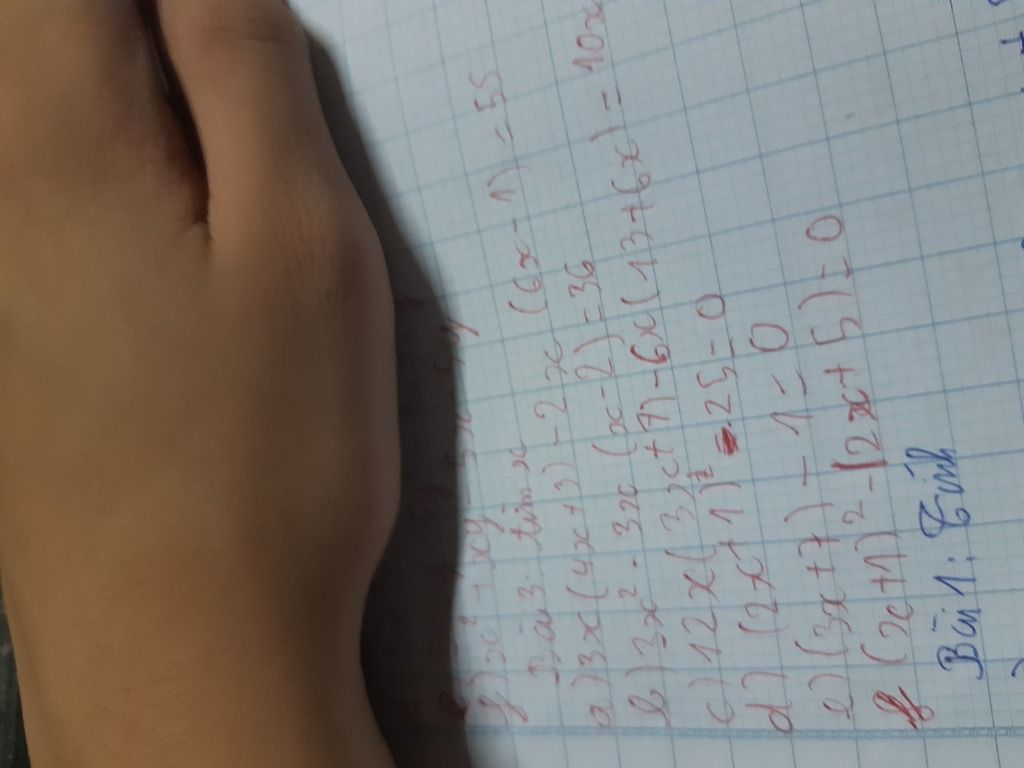 g) x² + xy - 5x - 5y
Bài 3: tìm x
a) 3x(4x+3) - 2x (6x-1) = 55
b) 3x² - 3x (x-2) = 36
c) 12x(3x+7) - 6x(13+6x) = 10x
d) (2x+1)² - 25 = 0
e) (3x+7) - 1 = 0
(x+1)² - (2x+5) = 0
Bài 1: Tính